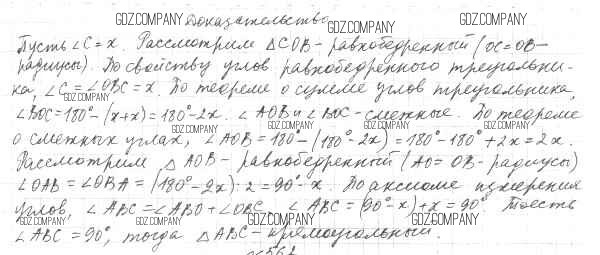 GDZ.COMPANY Доказательство GDZ.COMPANY GDZ.COMPANY
Пусть ∠C = x. Рассмотрим △COB - равнобедренный (OC=OB-
радиусы). По свойству углов равнобедренного треугольни-
ка, ∠C = ∠OBC = x. По теореме о сумме углов треугольника,
GDZ.COMPANY GDZ.COMPANY GDZ.COMPANY
∠BOC = 180° - (x+x) = 180° - 2x. ∠AOB и ∠BOC - смежные. По теореме
GDZ.COMPANY GDZ.COMPANY GDZ.COMPANY
о смежных углах, ∠AOB = 180° - (180° - 2x) = 180° - 180° + 2x = 2x.
Рассмотрим △AOB - равнобедренный (AO = OB - радиусы)
GDZ.COMPANY GDZ.COMPANY GDZ.COMPANY
∠OAB = ∠OBA = (180° - 2x) : 2 = 90° - x. По аксиоме измерения
углов, ∠ABC = ∠ABO + ∠OBC, ∠ABC = (90° - x) + x = 90°. Тоесть
GDZ.COMPANY GDZ.COMPANY GDZ.COMPANY
∠ABC = 90°, тогда △ABC - прямоугольный.